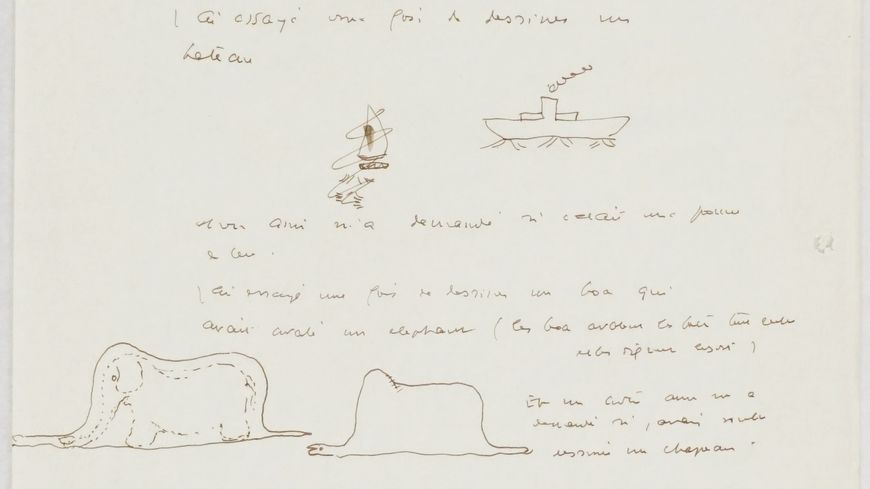 J'ai essayé une fois de dessiner un
bateau
et un ami m'a demandé si c'était une pomme
J'ai essayé une fois de dessiner un boa qui
avait avalé un elephant (les boa avalent les
Et un autre ami m'a
demandé si j'avais voulu
dessiner un chapeau